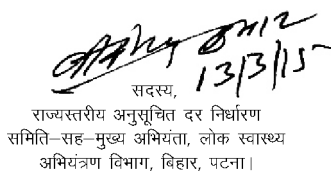 13/3/15
सदस्य,
राज्यस्तरीय अनुसूचित दर निर्धारण
समिति–सह–मुख्य अभियंता, लोक स्वास्थ्य
अभियंत्रण विभाग, बिहार, पटना।